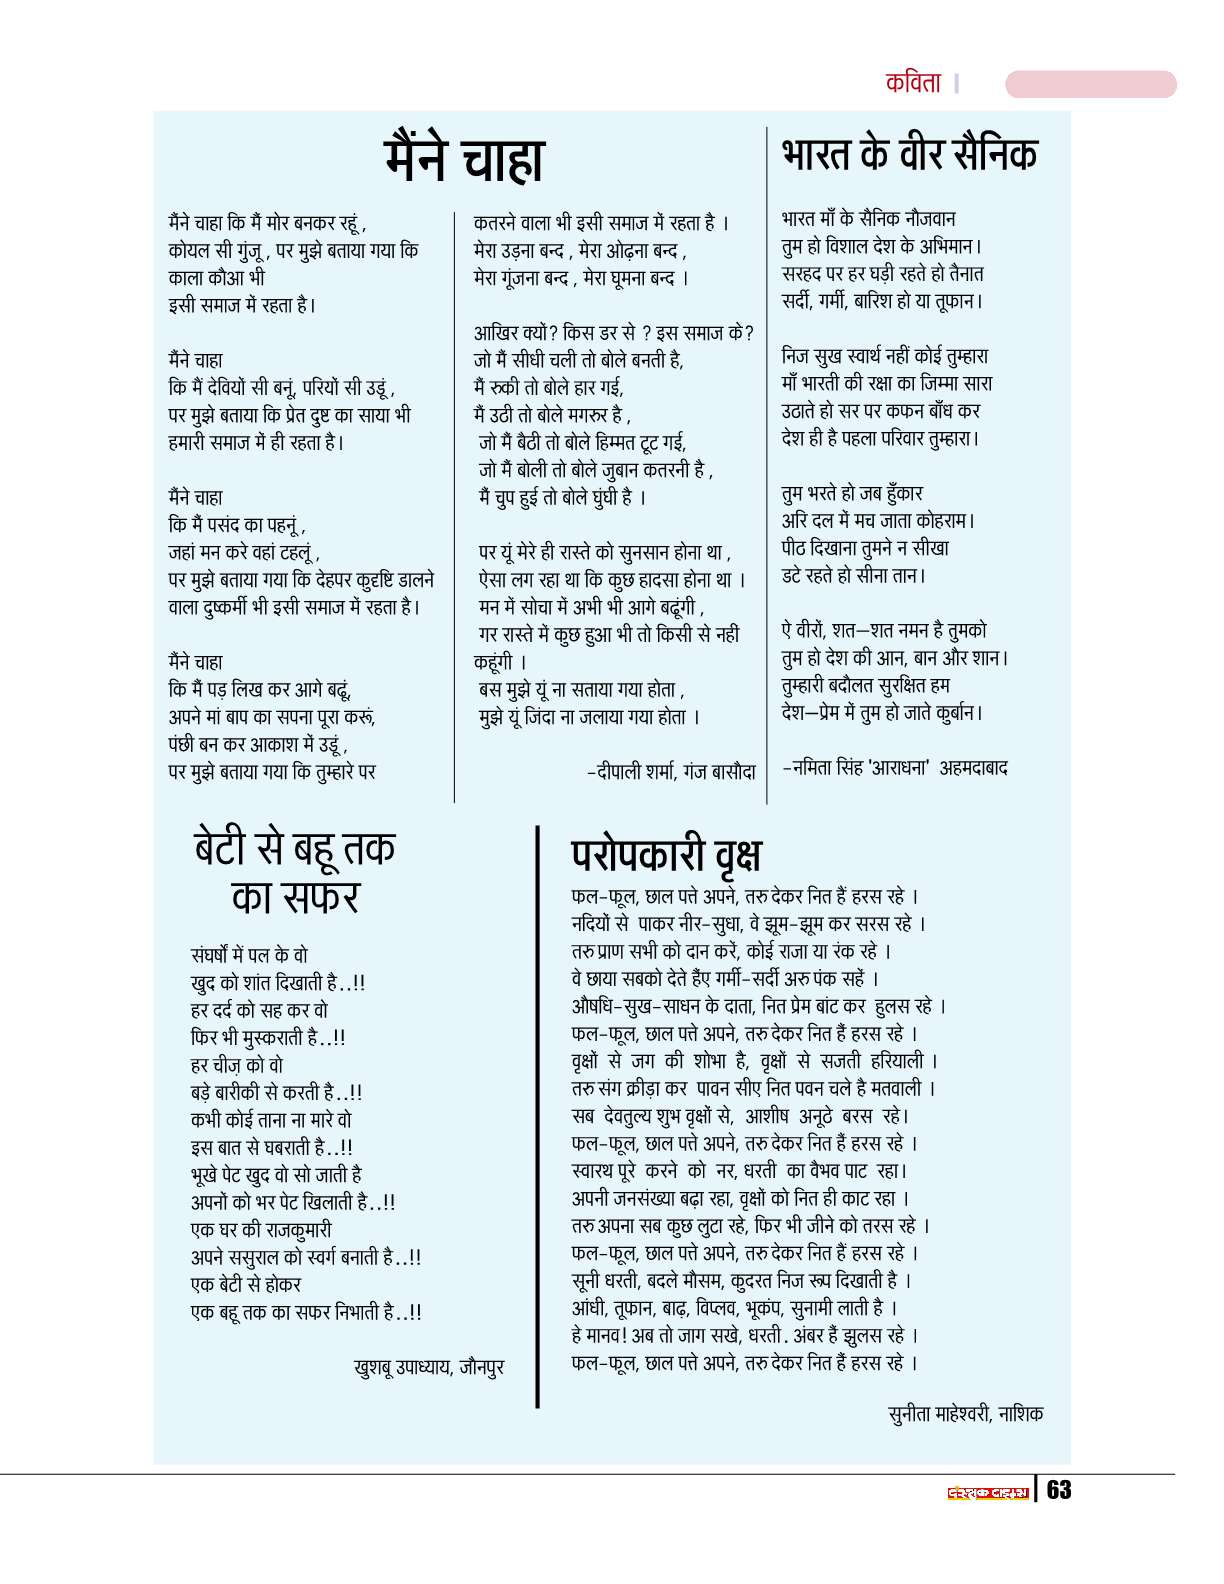 कविता
मैंने चाहा
मैंने चाहा कि मैं मोर बनकर रहूं ,
कोयल सी गुंजू , पर मुझे बताया गया कि
काला कौआ भी
इसी समाज में रहता है।
मैंने चाहा
कि मैं देवियों सी बनूं, परियों सी उडूं ,
पर मुझे बताया कि प्रेत दुष्ट का साया भी
हमारी समाज में ही रहता है।
मैंने चाहा
कि मैं पसंद का पहनूं ,
जहां मन करे वहां टहलूं ,
पर मुझे बताया गया कि देहपर कुदृष्टि डालने
वाला दुष्कर्मी भी इसी समाज में रहता है।
मैंने चाहा
कि मैं पड़ लिख कर आगे बढूं,
अपने मां बाप का सपना पूरा करूं,
पंछी बन कर आकाश में उडूं ,
पर मुझे बताया गया कि तुम्हारे पर
कतरने वाला भी इसी समाज में रहता है ।
मेरा उड़ना बन्द , मेरा ओढ़ना बन्द ,
मेरा गूंजना बन्द , मेरा घूमना बन्द ।
आखिर क्यों? किस डर से ? इस समाज के?
जो मैं सीधी चली तो बोले बनती है,
मैं रुकी तो बोले हार गई,
मैं उठी तो बोले मगरुर है ,
जो मैं बैठी तो बोले हिम्मत टूट गई,
जो मैं बोली तो बोले जुबान कतरनी है ,
मैं चुप हुई तो बोले घुंघी है ।
पर यूं मेरे ही रास्ते को सुनसान होना था ,
ऐसा लग रहा था कि कुछ हादसा होना था ।
मन में सोचा में अभी भी आगे बढूंगी ,
गर रास्ते में कुछ हुआ भी तो किसी से नही
कहूंगी ।
बस मुझे यूं ना सताया गया होता ,
मुझे यूं जिंदा ना जलाया गया होता ।
-दीपाली शर्मा, गंज बासौदा
भारत के वीर सैनिक
भारत माँ के सैनिक नौजवान
तुम हो विशाल देश के अभिमान।
सरहद पर हर घड़ी रहते हो तैनात
सर्दी, गर्मी, बारिश हो या तूफान।
निज सुख स्वार्थ नहीं कोई तुम्हारा
माँ भारती की रक्षा का जिम्मा सारा
उठाते हो सर पर कफन बाँध कर
देश ही है पहला परिवार तुम्हारा।
तुम भरते हो जब हुँकार
अरि दल में मच जाता कोहराम।
पीठ दिखाना तुमने न सीखा
डटे रहते हो सीना तान।
ऐ वीरों, शत–शत नमन है तुमको
तुम हो देश की आन, बान और शान।
तुम्हारी बदौलत सुरक्षित हम
देश–प्रेम में तुम हो जाते कुर्बान।
-नमिता सिंह 'आराधना' अहमदाबाद
बेटी से बहू तक
का सफर
संघर्षों में पल के वो
खुद को शांत दिखाती है..!!
हर दर्द को सह कर वो
फिर भी मुस्कराती है..!!
हर चीज़ को वो
बड़े बारीकी से करती है..!!
कभी कोई ताना ना मारे वो
इस बात से घबराती है..!!
भूखे पेट खुद वो सो जाती है
अपनों को भर पेट खिलाती है..!!
एक घर की राजकुमारी
अपने ससुराल को स्वर्ग बनाती है..!!
एक बेटी से होकर
एक बहू तक का सफर निभाती है..!!
खुशबू उपाध्याय, जौनपुर
परोपकारी वृक्ष
फल-फूल, छाल पत्ते अपने, तरु देकर नित हैं हरस रहे ।
नदियों से पाकर नीर-सुधा, वे झूम-झूम कर सरस रहे ।
तरु प्राण सभी को दान करें, कोई राजा या रंक रहे ।
वे छाया सबको देते हैंए गर्मी-सर्दी अरु पंक सहें ।
औषधि-सुख-साधन के दाता, नित प्रेम बांट कर हुलस रहे ।
फल-फूल, छाल पत्ते अपने, तरु देकर नित हैं हरस रहे ।
वृक्षों से जग की शोभा है, वृक्षों से सजती हरियाली ।
तरु संग क्रीड़ा कर पावन सीए नित पवन चले है मतवाली ।
सब देवतुल्य शुभ वृक्षों से, आशीष अनूठे बरस रहे।
फल-फूल, छाल पत्ते अपने, तरु देकर नित हैं हरस रहे ।
स्वारथ पूरे करने को नर, धरती का वैभव पाट रहा।
अपनी जनसंख्या बढ़ा रहा, वृक्षों को नित ही काट रहा ।
तरु अपना सब कुछ लुटा रहे, फिर भी जीने को तरस रहे ।
फल-फूल, छाल पत्ते अपने, तरु देकर नित हैं हरस रहे ।
सूनी धरती, बदले मौसम, कुदरत निज रूप दिखाती है ।
आंधी, तूफान, बाढ़, विप्लव, भूकंप, सुनामी लाती है ।
हे मानव! अब तो जाग सखे, धरती. अंबर हैं झुलस रहे ।
फल-फूल, छाल पत्ते अपने, तरु देकर नित हैं हरस रहे ।
सुनीता माहेश्वरी, नाशिक
63